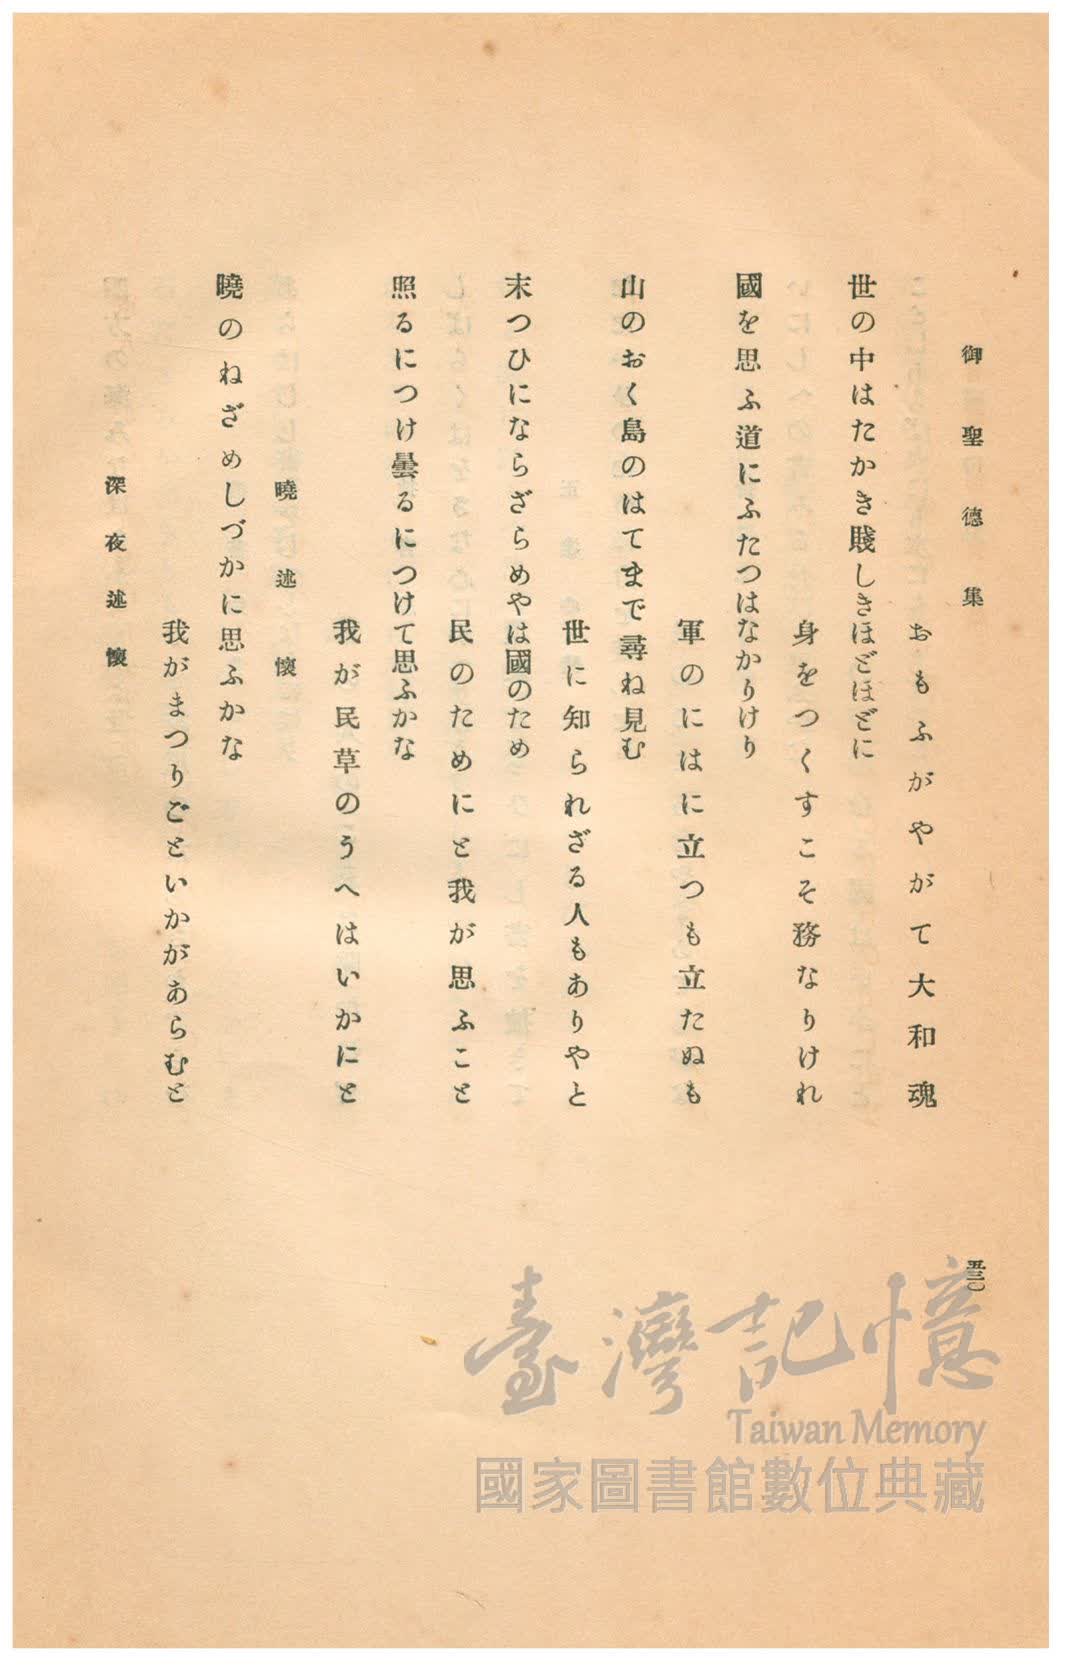 御聖德集
おもふがやがて大和魂
世の中はたかき賤しきほどほどに
身をつくすこそ務なりけれ
國を思ふ道にふたつはなかりけり
軍のにはに立つも立たぬも
山のおく島のはてまで尋ね見む
世に知られざる人もありやと
末つひにならざらめやは國のため
民のためにと我が思ふこと
照るにつけ曇るにつけて思ふかな
我が民草のうへはいかにと
曉述懷
曉のねざめしづかに思ふかな
我がまつりごといかがあらむと
深夜述懷
五三〇
臺灣記憶
Taiwan Memory
國家圖書館數位典藏